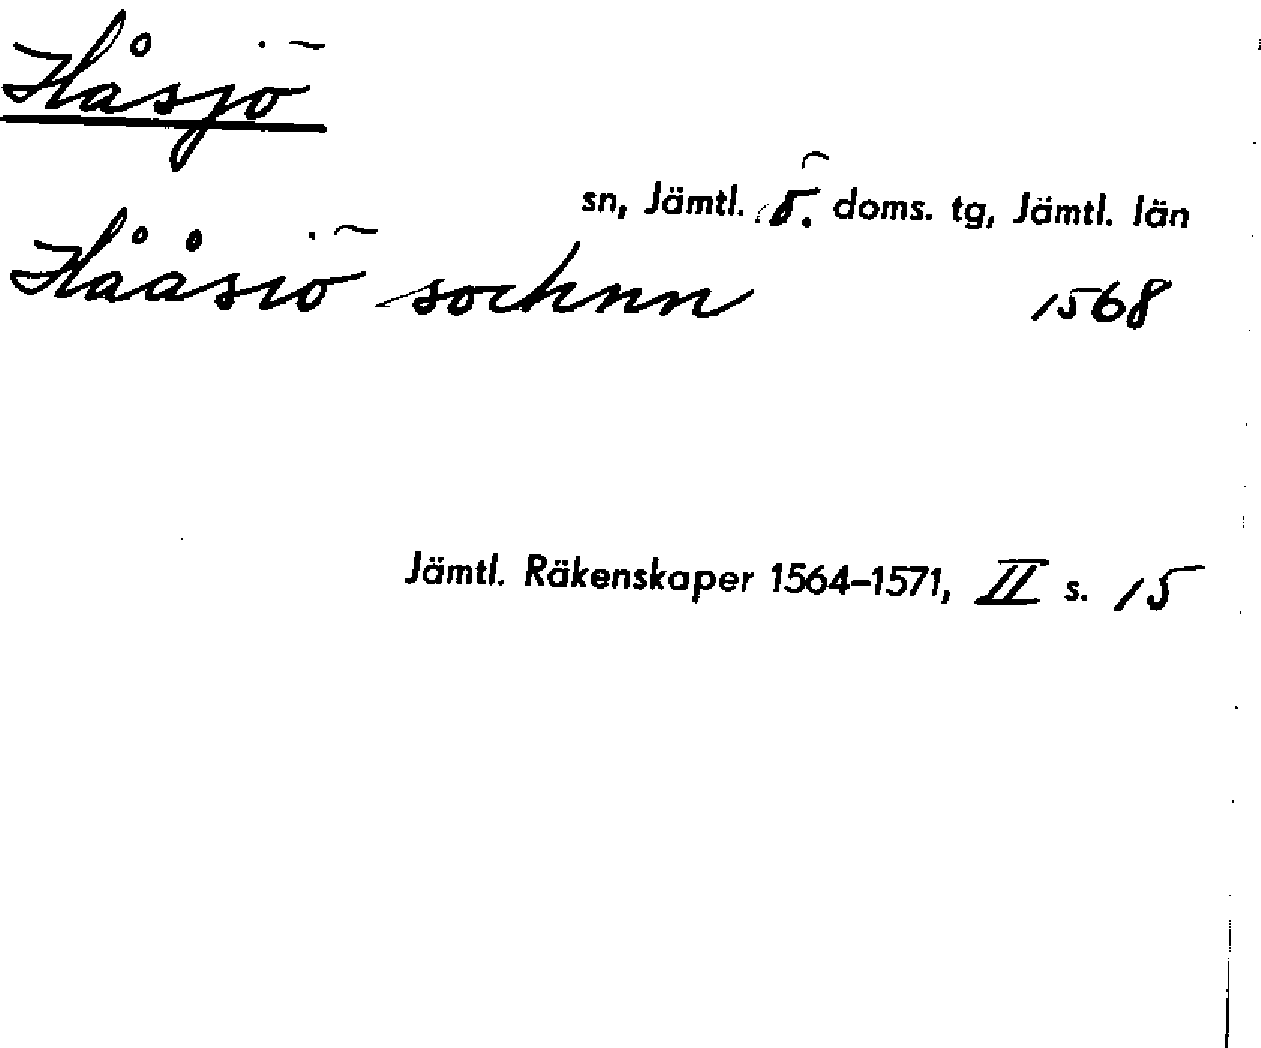 Håsjö
sn, Jämtl. ö. doms. tg, Jämtl. län
Hååsiö sochnn 1568
Jämtl. Räkenskaper 1564–1571, II s. 15